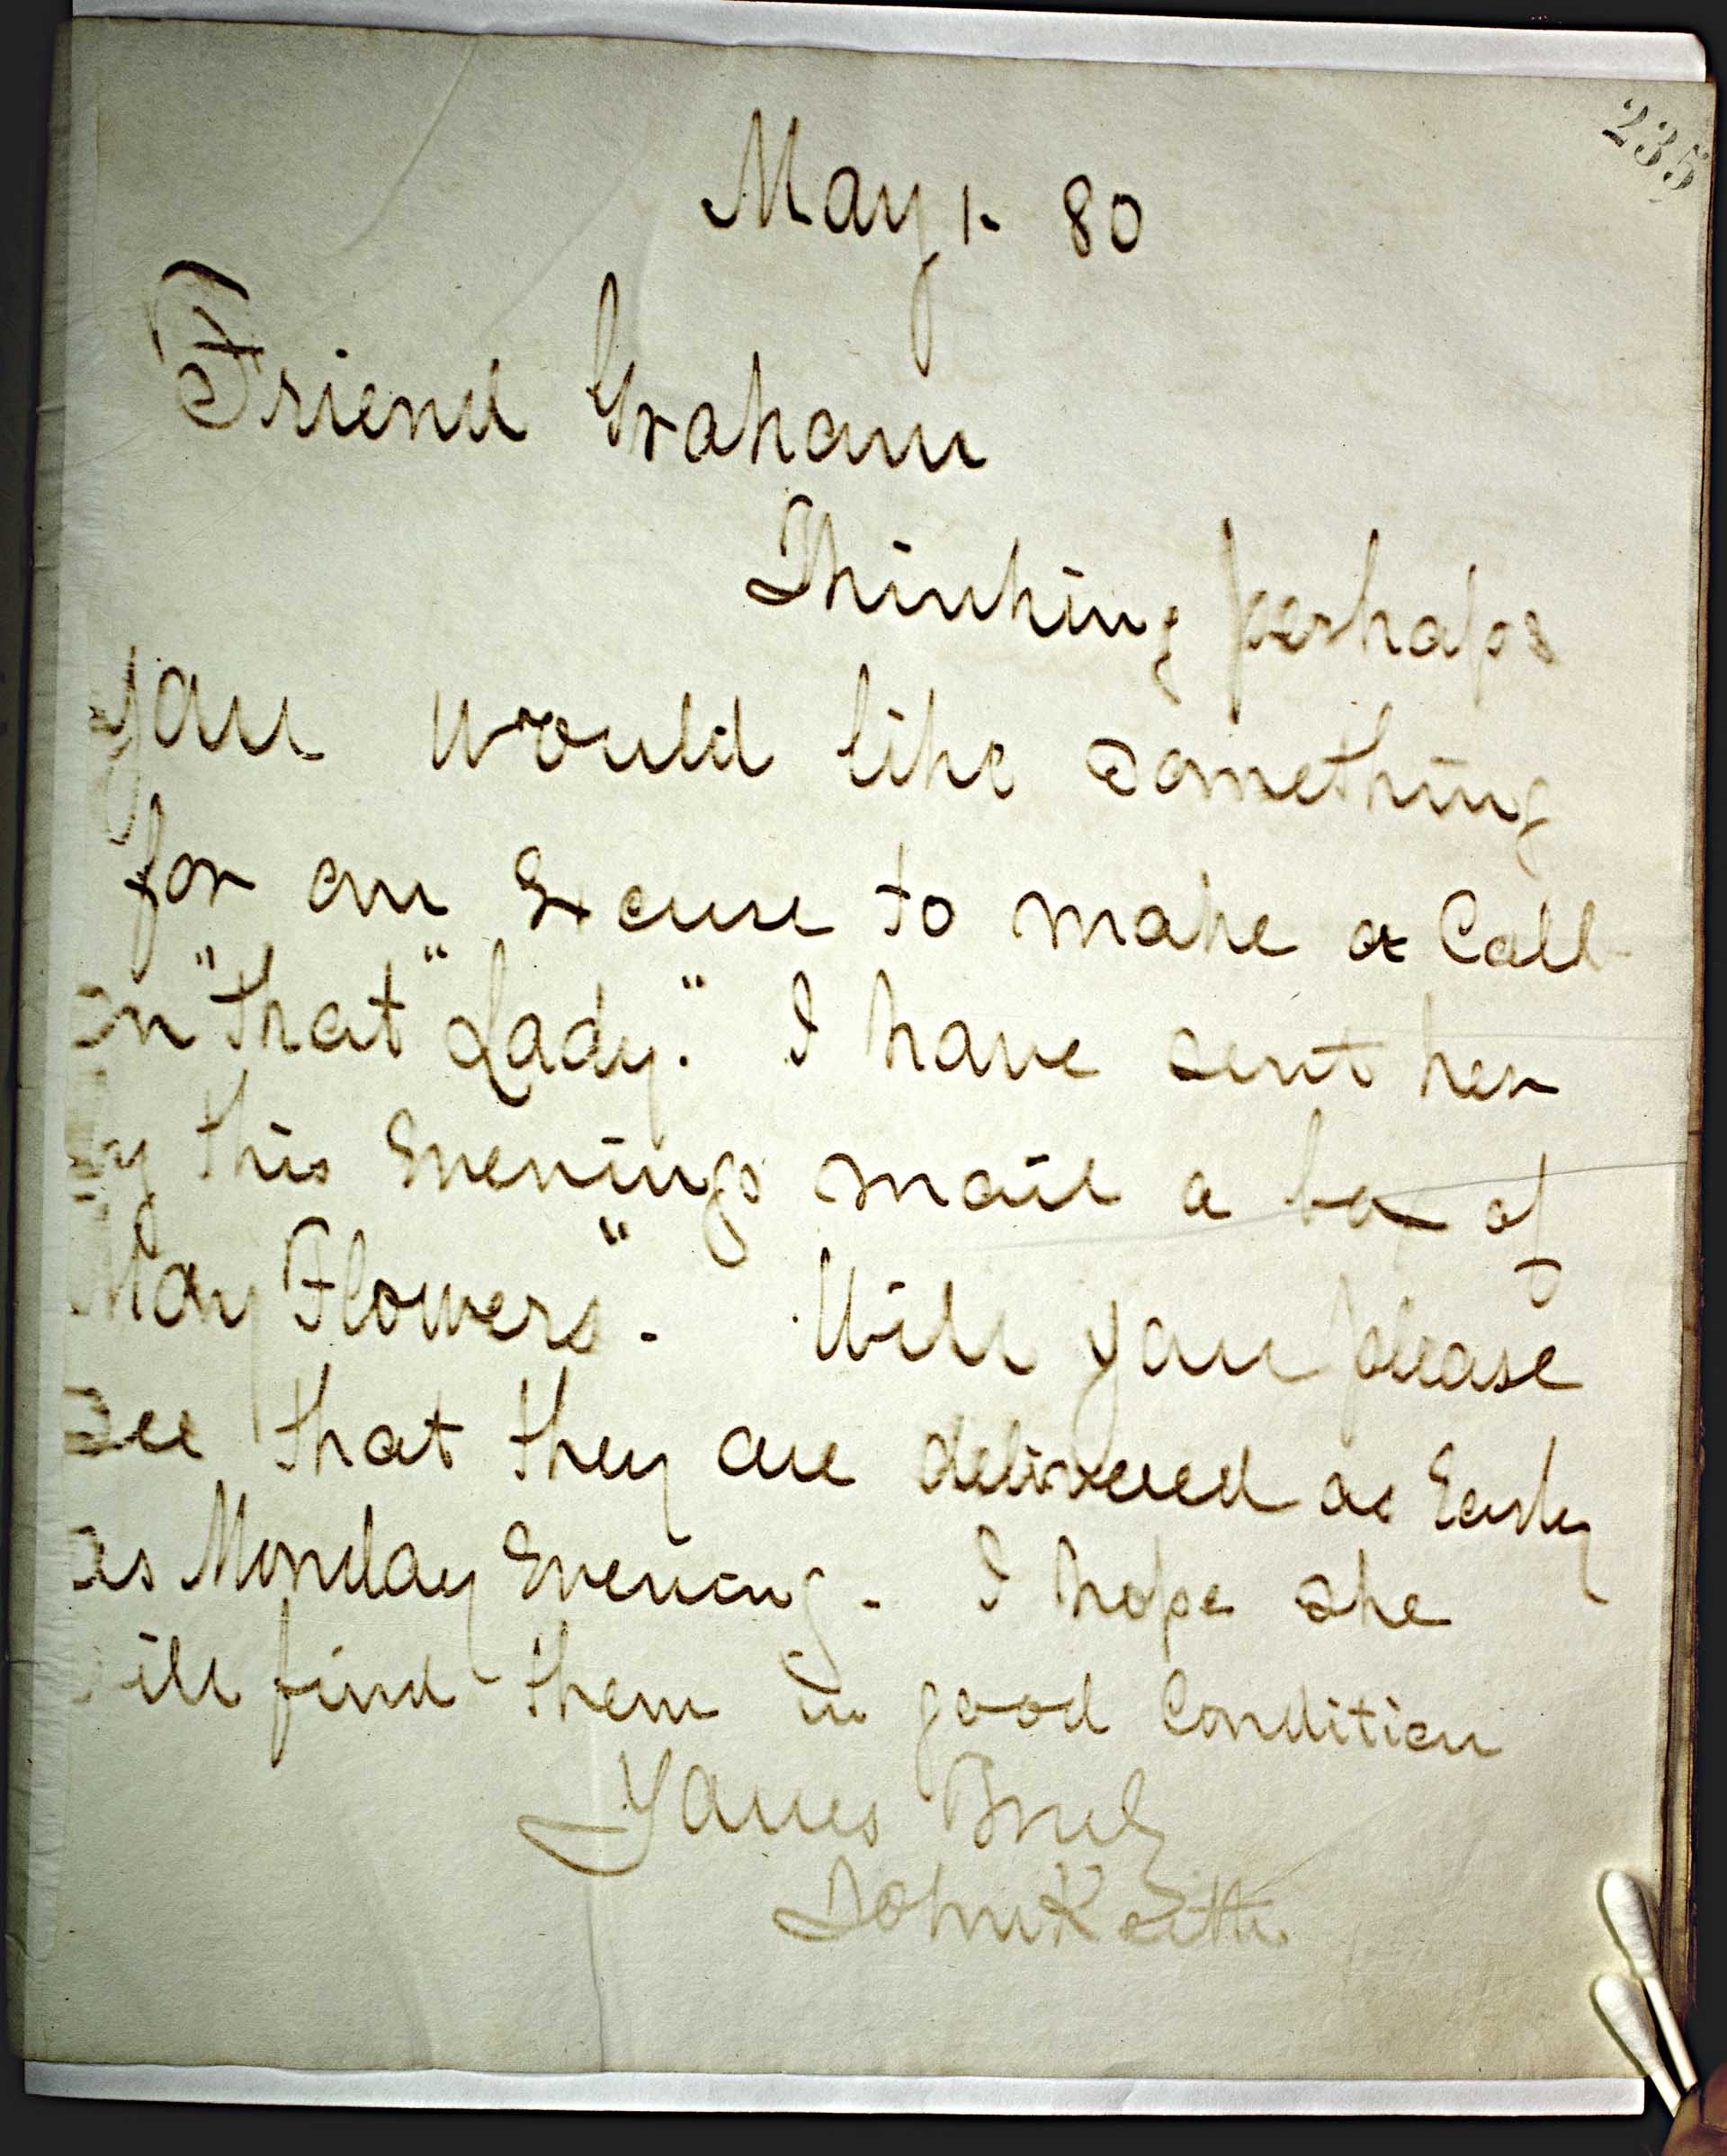 235
May 1. 80
Friend Graham
Thinking perhaps
you would like something
for an Excuse to make a Call
on "that" Lady." I have sent her
by this Evenings mail a box of
May Flowers". Will you please
see that they are delivered as Early
as Monday Evening. I hope she
will find them in good Condition
Yours Truly
John Keith